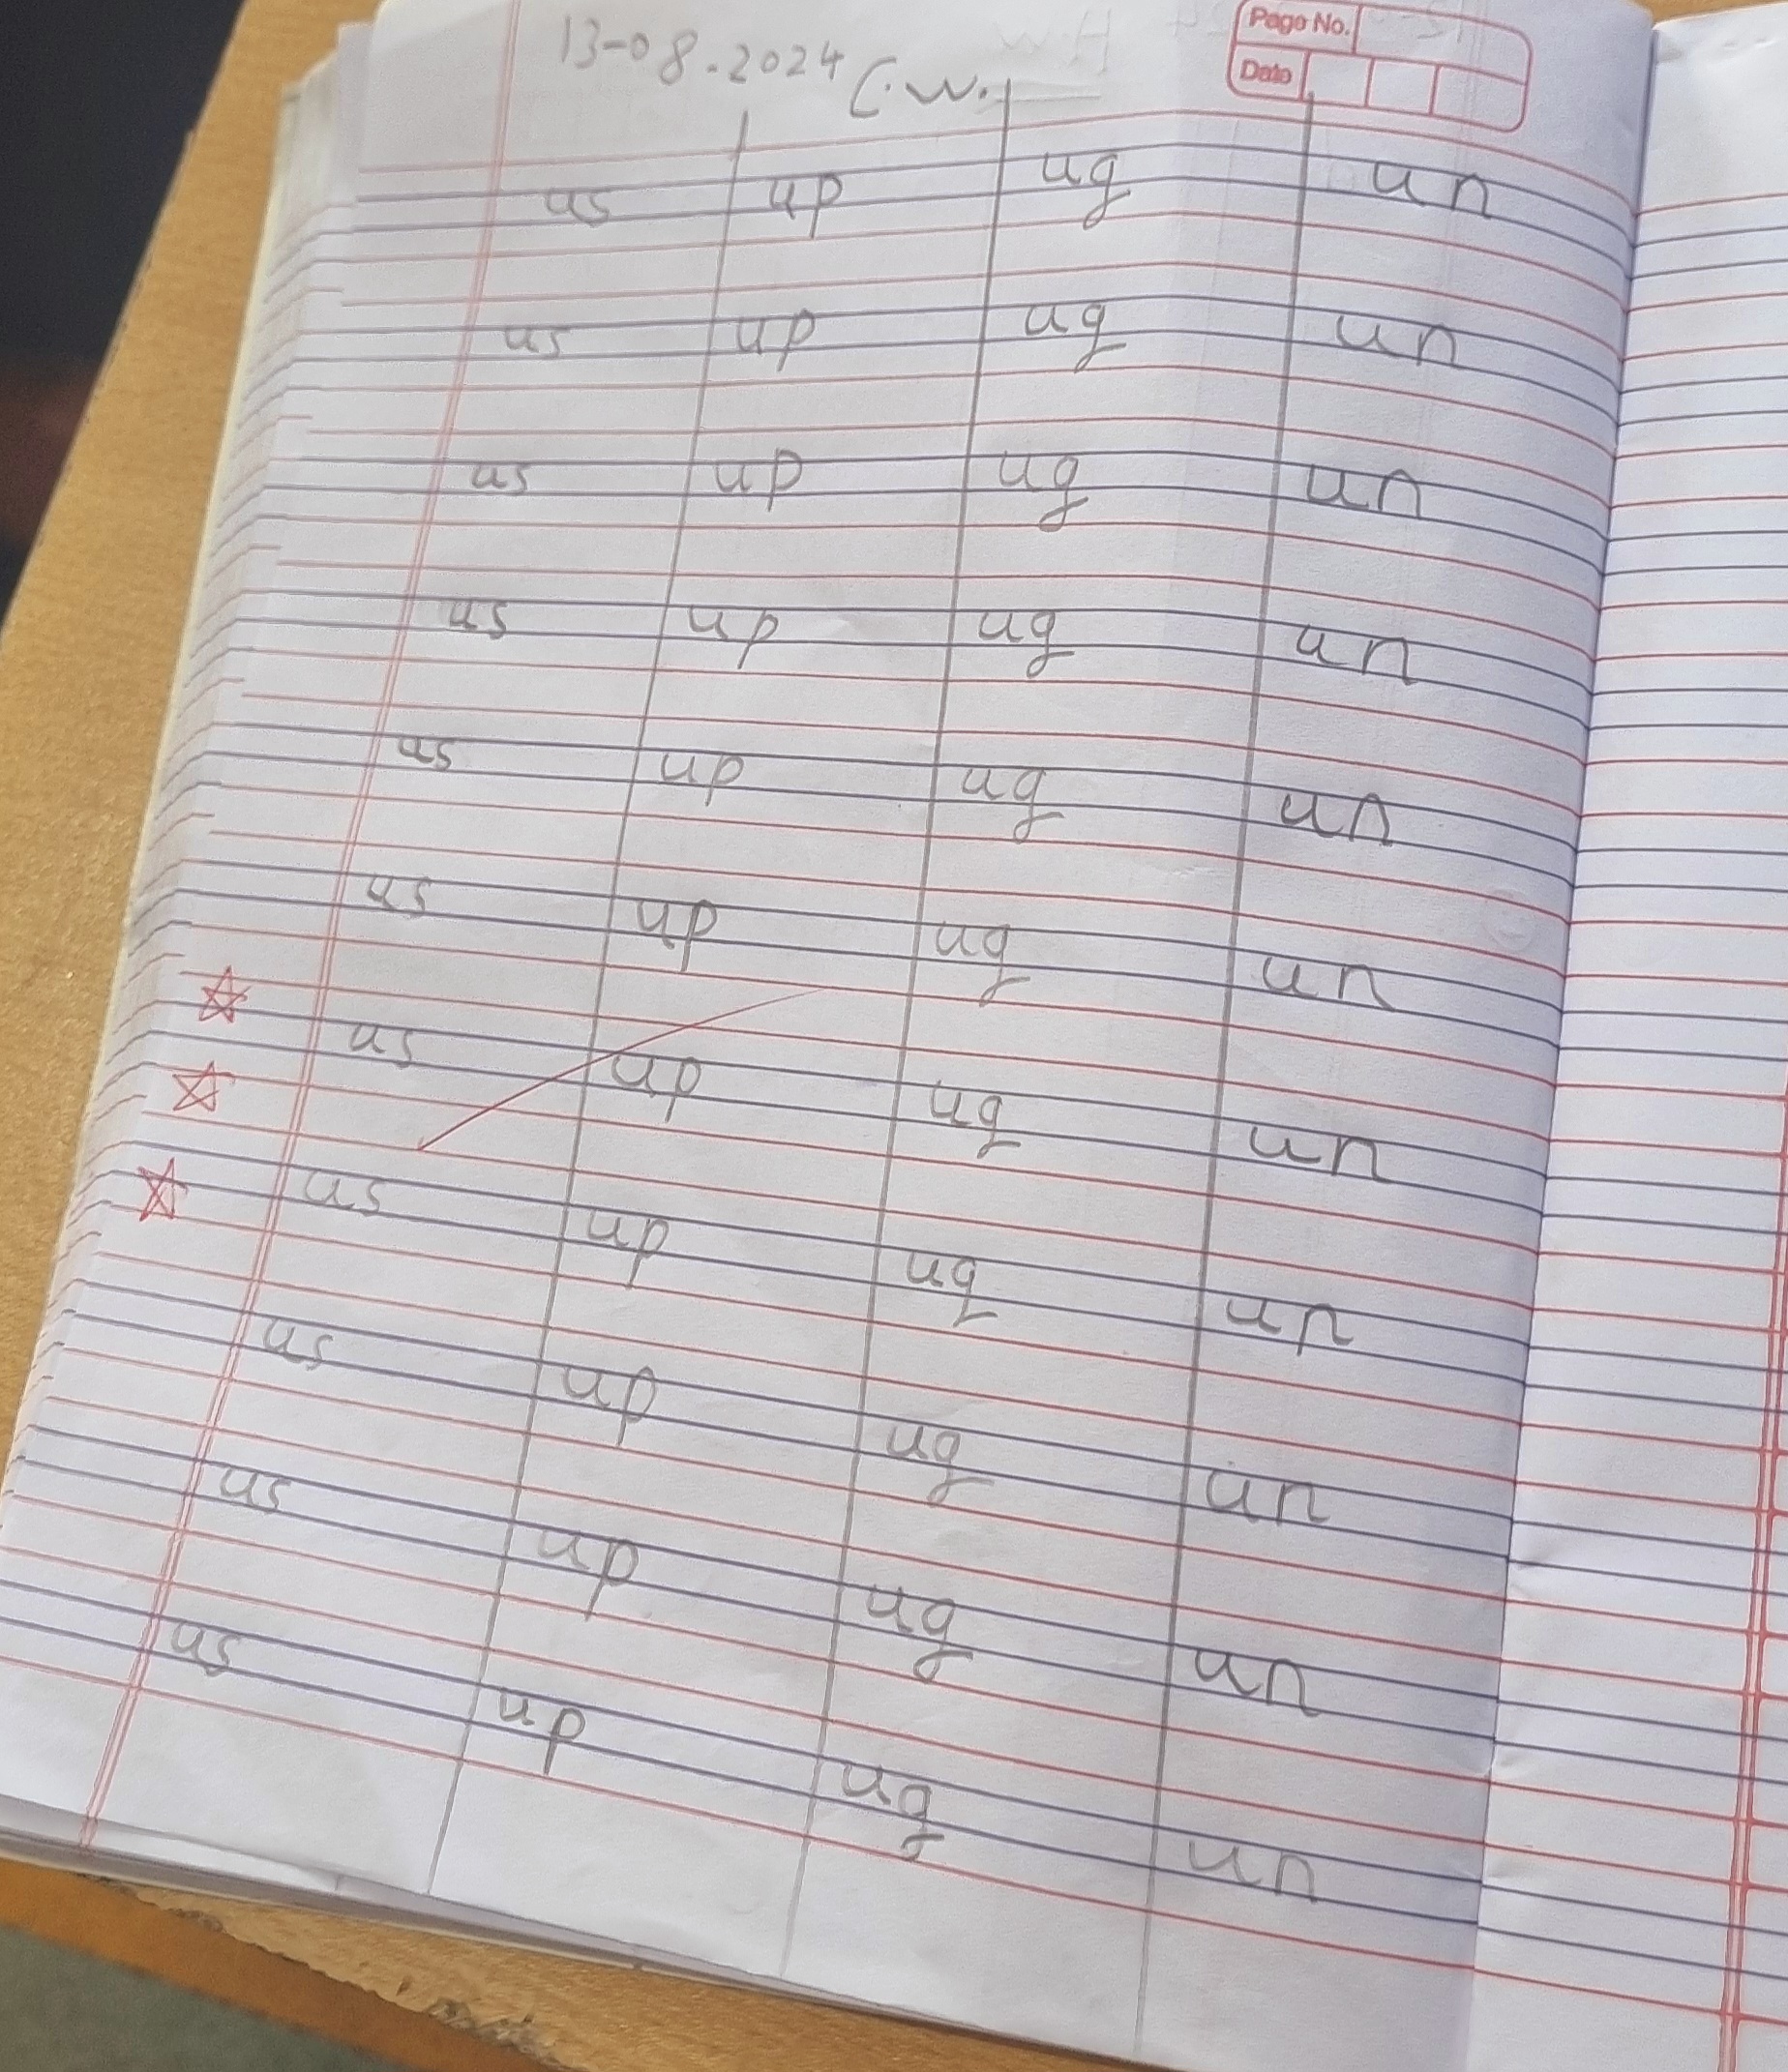 Page No.
13-08.2024 C.W.
Date
us up ug un
us up ug un
us up ug un
us up ug un
us up ug un
us up ug un
us up ug un
us up ug un
us up ug un
us up ug un
us up ug un